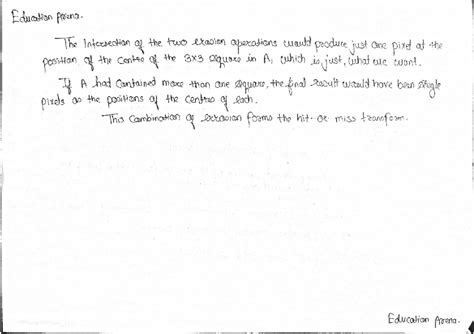 Education Arena.
The Intersection of the two erosion operations would produce just one pixel at the
position of the centre of the 3x3 square in A, which is just what we want.
If A had Contained more than one square, the final result would have been single
pixels at the positions of the centres of each.
This Combination of erosion forms the hit-or-miss transform.
Education Arena.